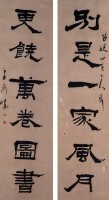 別是一家風月
更饒萬卷圖書